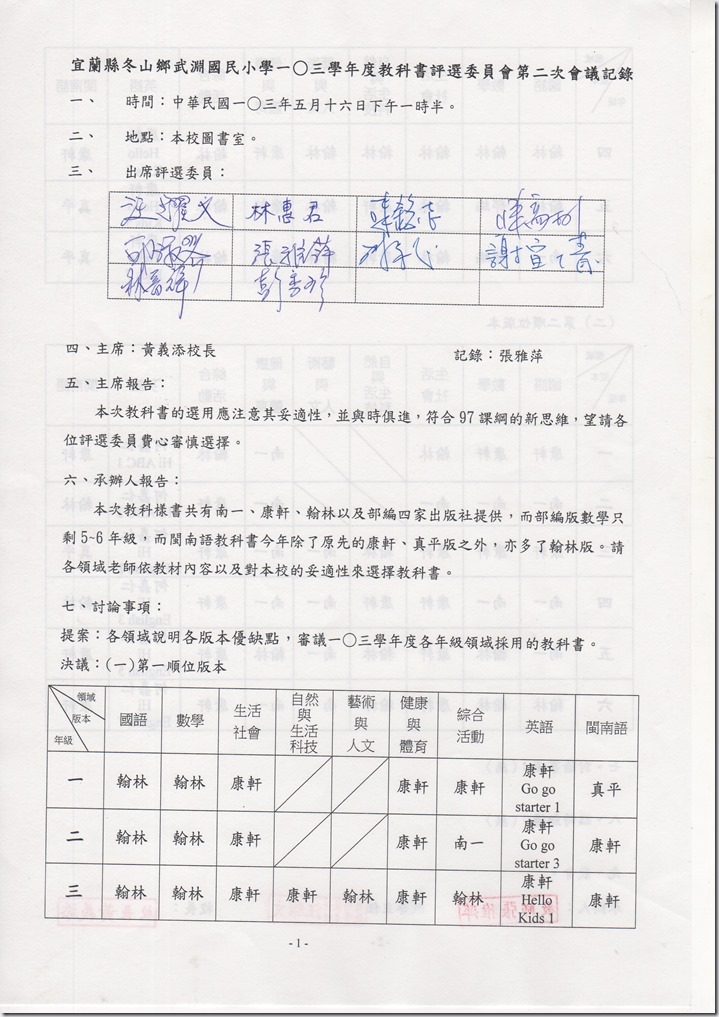 宜蘭縣冬山鄉武淵國民小學一〇三學年度教科書評選委員會第二次會議記錄
一、 時間：中華民國一〇三年五月十六日下午一時半。
二、 地點：本校圖書室。
三、 出席評選委員：
林惠君
張雅萍 謝宜青
彭秀珍
四、主席：黃義添校長 記錄：張雅萍
五、主席報告：
本次教科書的選用應注意其妥適性，並與時俱進，符合97課綱的新思維，望請各
位評選委員費心審慎選擇。
六、承辦人報告：
本次教科樣書共有南一、康軒、翰林以及部編四家出版社提供，而部編版數學只
剩5~6年級，而閩南語教科書今年除了原先的康軒、真平版之外，亦多了翰林版。請
各領域老師依教材內容以及對本校的妥適性來選擇教科書。
七、討論事項：
提案：各領域說明各版本優缺點，審議一〇三學年度各年級領域採用的教科書。
決議：(一)第一順位版本
領域 版本 年級 國語 數學 生活社會 自然與生活科技 藝術與人文 健康與體育 綜合活動 英語 閩南語
一 翰林 翰林 康軒 康軒 康軒 康軒 Go go starter 1 真平
二 翰林 翰林 康軒 康軒 南一 康軒 Go go starter 3 康軒
三 翰林 翰林 康軒 康軒 翰林 康軒 翰林 康軒 Hello Kids 1 康軒
- 1 -